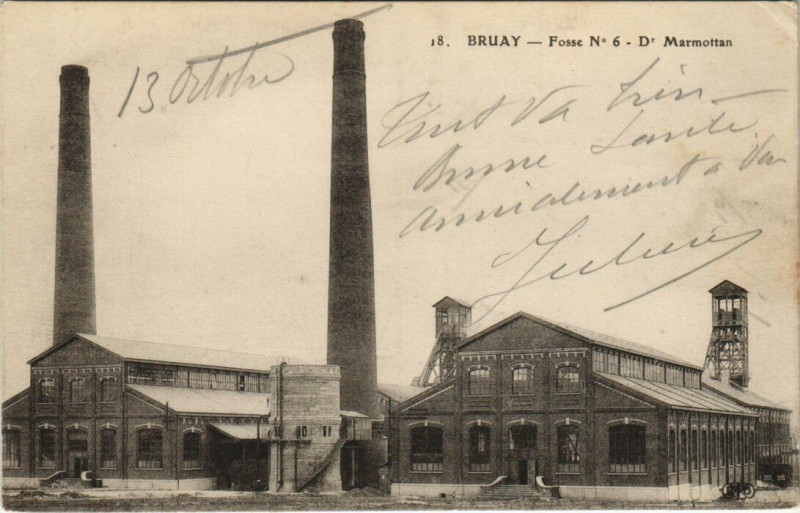 18. BRUAY — Fosse N° 6 - Dr Marmottan
13 Octobre
Tout va bien
Bonne Santé
amicalement a Vou